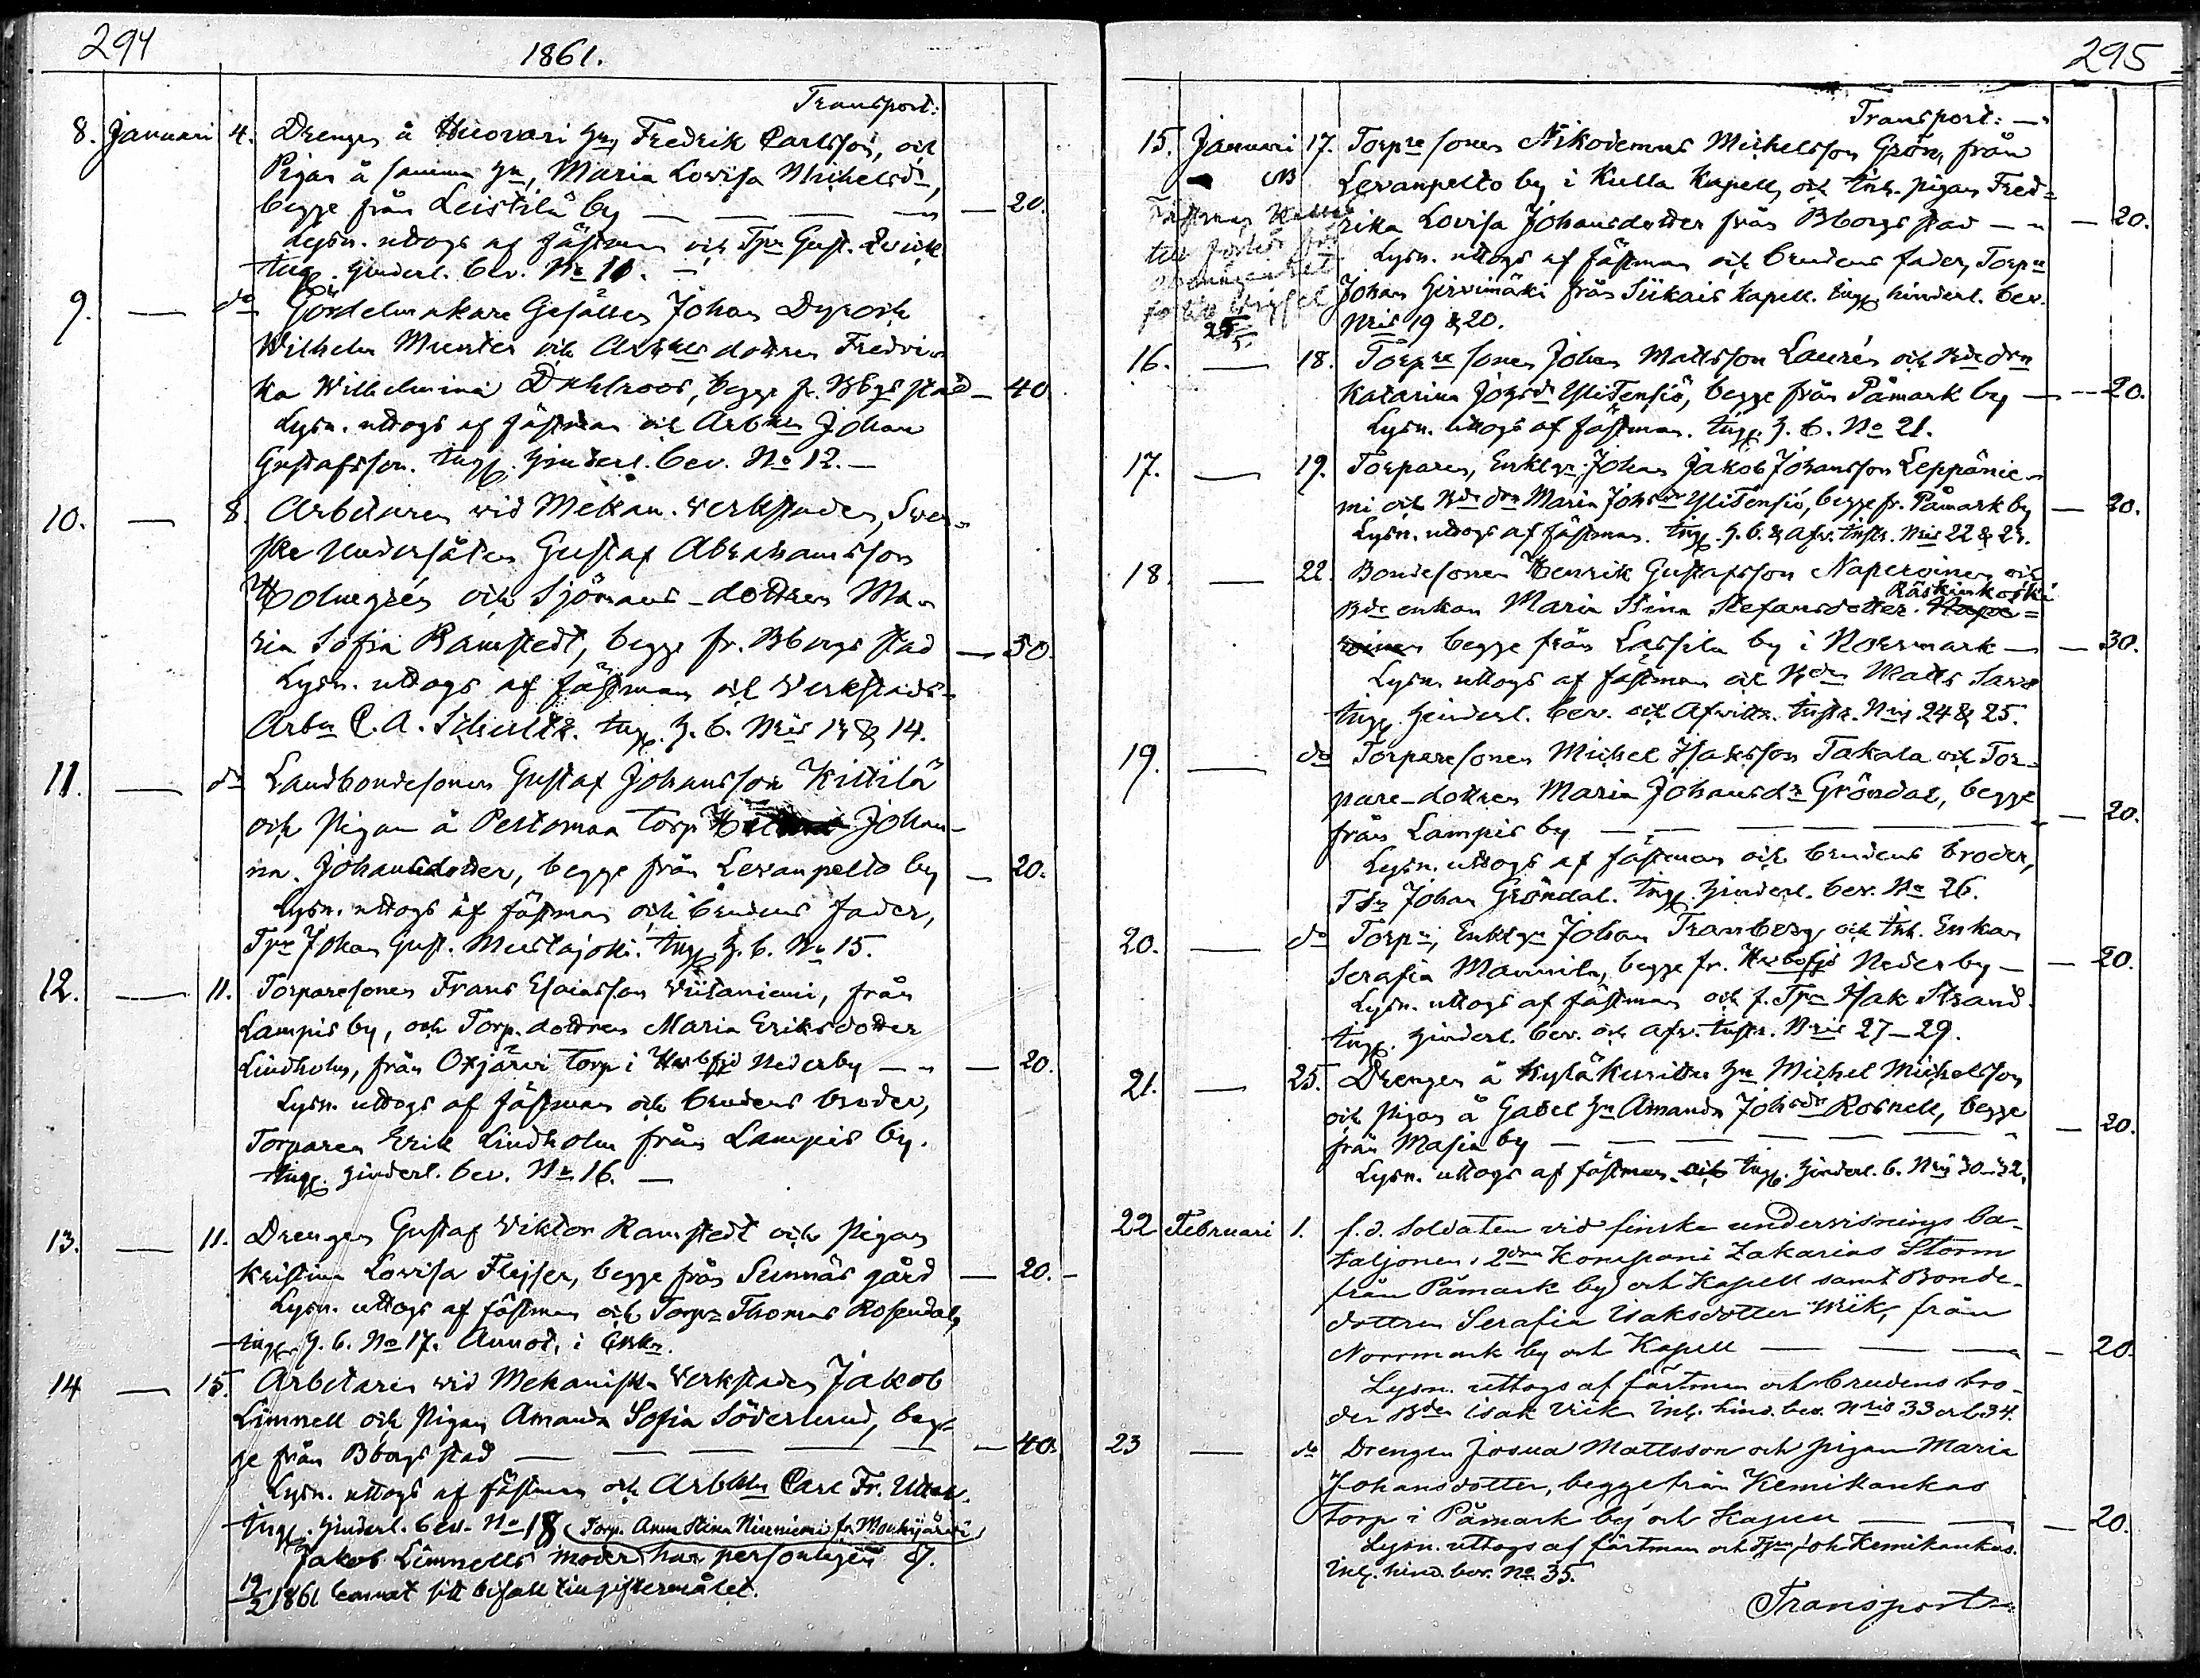 294
1861.
Transport:
8. Januari 4. Drengen å Huovari hn, Fredrik Carlsson, och
Pigan å samma hn, Maria Lovisa Michelsdr,
begge från Leistilä by — — — — 20.
Lysn. uttogs af fästman och Tpr Gust.
Ingg. hinderl. bev. No 11. —
9. — do Gördelmakare Gesällen Johan
Wilhelm Munter och Arbkls dottren Fredri-
ka Wilhelmina Dahlroos, begge fr. Bbgs stad — 40
Lysn. uttogs af fästman och Arbkln Johan
Gustafsson. Ingg. hinderl. bev. No 12. —
10. — 8. Arbetaren vid Mekan. verkstaden, Sven-
ske Undersåten Gustaf Abrahamsson
Holmgrén och Sjömans-dottren Ma-
ria Sofia Ramstedt, begge fr. Bborgs stad — 50.
Lysn. uttogs af fästman och Verkstads-
Arbn C. A. Schultz. Ingg. h. b. Nris 13 & 14.
11. — do Landbondesonen Gustaf Johansson Kittilä
och pigan å Peltomaa torp Johan-
na Johansdotter, begge från Levanpelto by — 20.
Lysn. uttogs af fästman och brudens fader,
Tpr Johan Gust. Mustajoki. Ingg. h. b. No 15.
12. — 11. Torparesonen Frans Esaiasson Viitaniemi, från
Lampis by, och Torp. dottren Maria Eriksdotter
Lindholm, från Oxjärvi torp i Hvbfjd Nederby — — 20.
Lysn. uttogs af fästman och brudens broder,
Torparen Erik Lindholm från Lampis by.
Ingg. hinderl. bev. No 16. —
13. — 11. Drengen Gustaf Viktor Ramstedt och Pigan
Kristina Lovisa Flejser, begge från Sunnäs gård — 20. —
Lysn. uttogs af fästman och Torpr Thomas Rosendal,
Ingg. h. b. No 17. Annot. i
14 — 15. Arbetaren vid Mekaniska Verkstaden Jakob
Limnell och Pigan Amanda Sofia Söderlund, beg-
ge från Bborgs stad — — — — — 40.
Lysn. uttogs af fästman och Arbkln Carl Fr.
Ingg. hinderl. bev. No 18 (Torp. Anna Stina Niemi fr. Mouhijärvi)
Jakob Limnells moder har personligen d.
19/2 1861 lemnat sitt bifall till giftermålet.
295
Transport: —
15. Januari 17. Torpre sonen Nikodemus Michelsson Grön, från
NB Levanpelto by i Kulla Kapell, och Inh. pigan Fred-
Fästman
rika Lovisa Johansdotter från Bborgs stad — — 20.
till
Lysn. uttogs af fästman och brudens fader, Torpn
Johan Hirvimäki från Siikais kapell. Ingg. hinderl. bev.
25/5
Nris 19 & 20.
16. — 18. Torpre sonen Johan Mattsson Laurén och Bde drn
Katarina Johsdr Ylitensiö, begge från Påmark by — 20.
Lysn. uttogs af fästman. Ingg. h. b. No 21.
17. — 19. Torparen, Enklgn Johan Jakob Johansson Leppänie-
mi och Bde drn Maria Johsdr Ylitensiö, begge fr. Påmark by — 20.
Lysn. uttogs af fästman. Ingg. h. b. & Afv. Instr. Nris 22 & 23.
18. — 22. Bondesonen Henrik Gustafsson Naperoinen och
Räskinkoski
Bde enkan Maria Stina Stefansdotter Nape-
roinen begge från Lassila by i Norrmark — — 30.
Lysn. uttogs af fästman och Bden Matts
Ingg. hinderl. bev. och Afvittr. Instr. Nris 24 & 25.
19. — do Torparesonen Michel Isaksson Takala och Tor-
pare-dottren Maria Johansdr Gröndal, begge
från Lampis by — — — — — 20.
Lysn. uttogs af fästman och brudens broder,
Johan Gröndal. Ingg. hinderl. bev. No 26.
20. — do Torpn, Enklgn Johan Tranberg och Inh. Enkan
Serafia Mannila, begge fr. Hvbofjd Nederby — — 20.
Lysn. uttogs af fästman och f. Tpr Isak Strand.
Ingg. hinderl. bev. och Afv. Instr. Nris 27–29.
21. — 25. Drengen å Kyläkuritta hn Michel Michelsson
och Pigan å Gabel hn Amanda Johsdr Rosnell, begge
från Masia by — — — — — 20.
Lysn. uttogs af fästman. och Ingg. hinderl. b. Nris 30–32.
22 Februari 1. f.d. Soldaten vid finska undervisnings ba-
taljonen, 2dra Kompani Zakarias Storm
från Påmark by och Kapell samt Bonde-
dottren Serafia Isaksdotter Wiik, från
Norrmark by och Kapell — — — 20.
Lysn. uttogs af fästman och brudens bro-
der Bden Isak Wiik Inl. hind. bev. Nris 33 och 34.
23 — do Drengen Josua Mattsson och pigan Maria
Johansdotter, begge från Kemikankas
torp i Påmark by och Kapell — — 20.
Lysn. uttogs af fästman och Tprn Joh Kemikankas.
Inl. hind. bev. No 35.
Transport